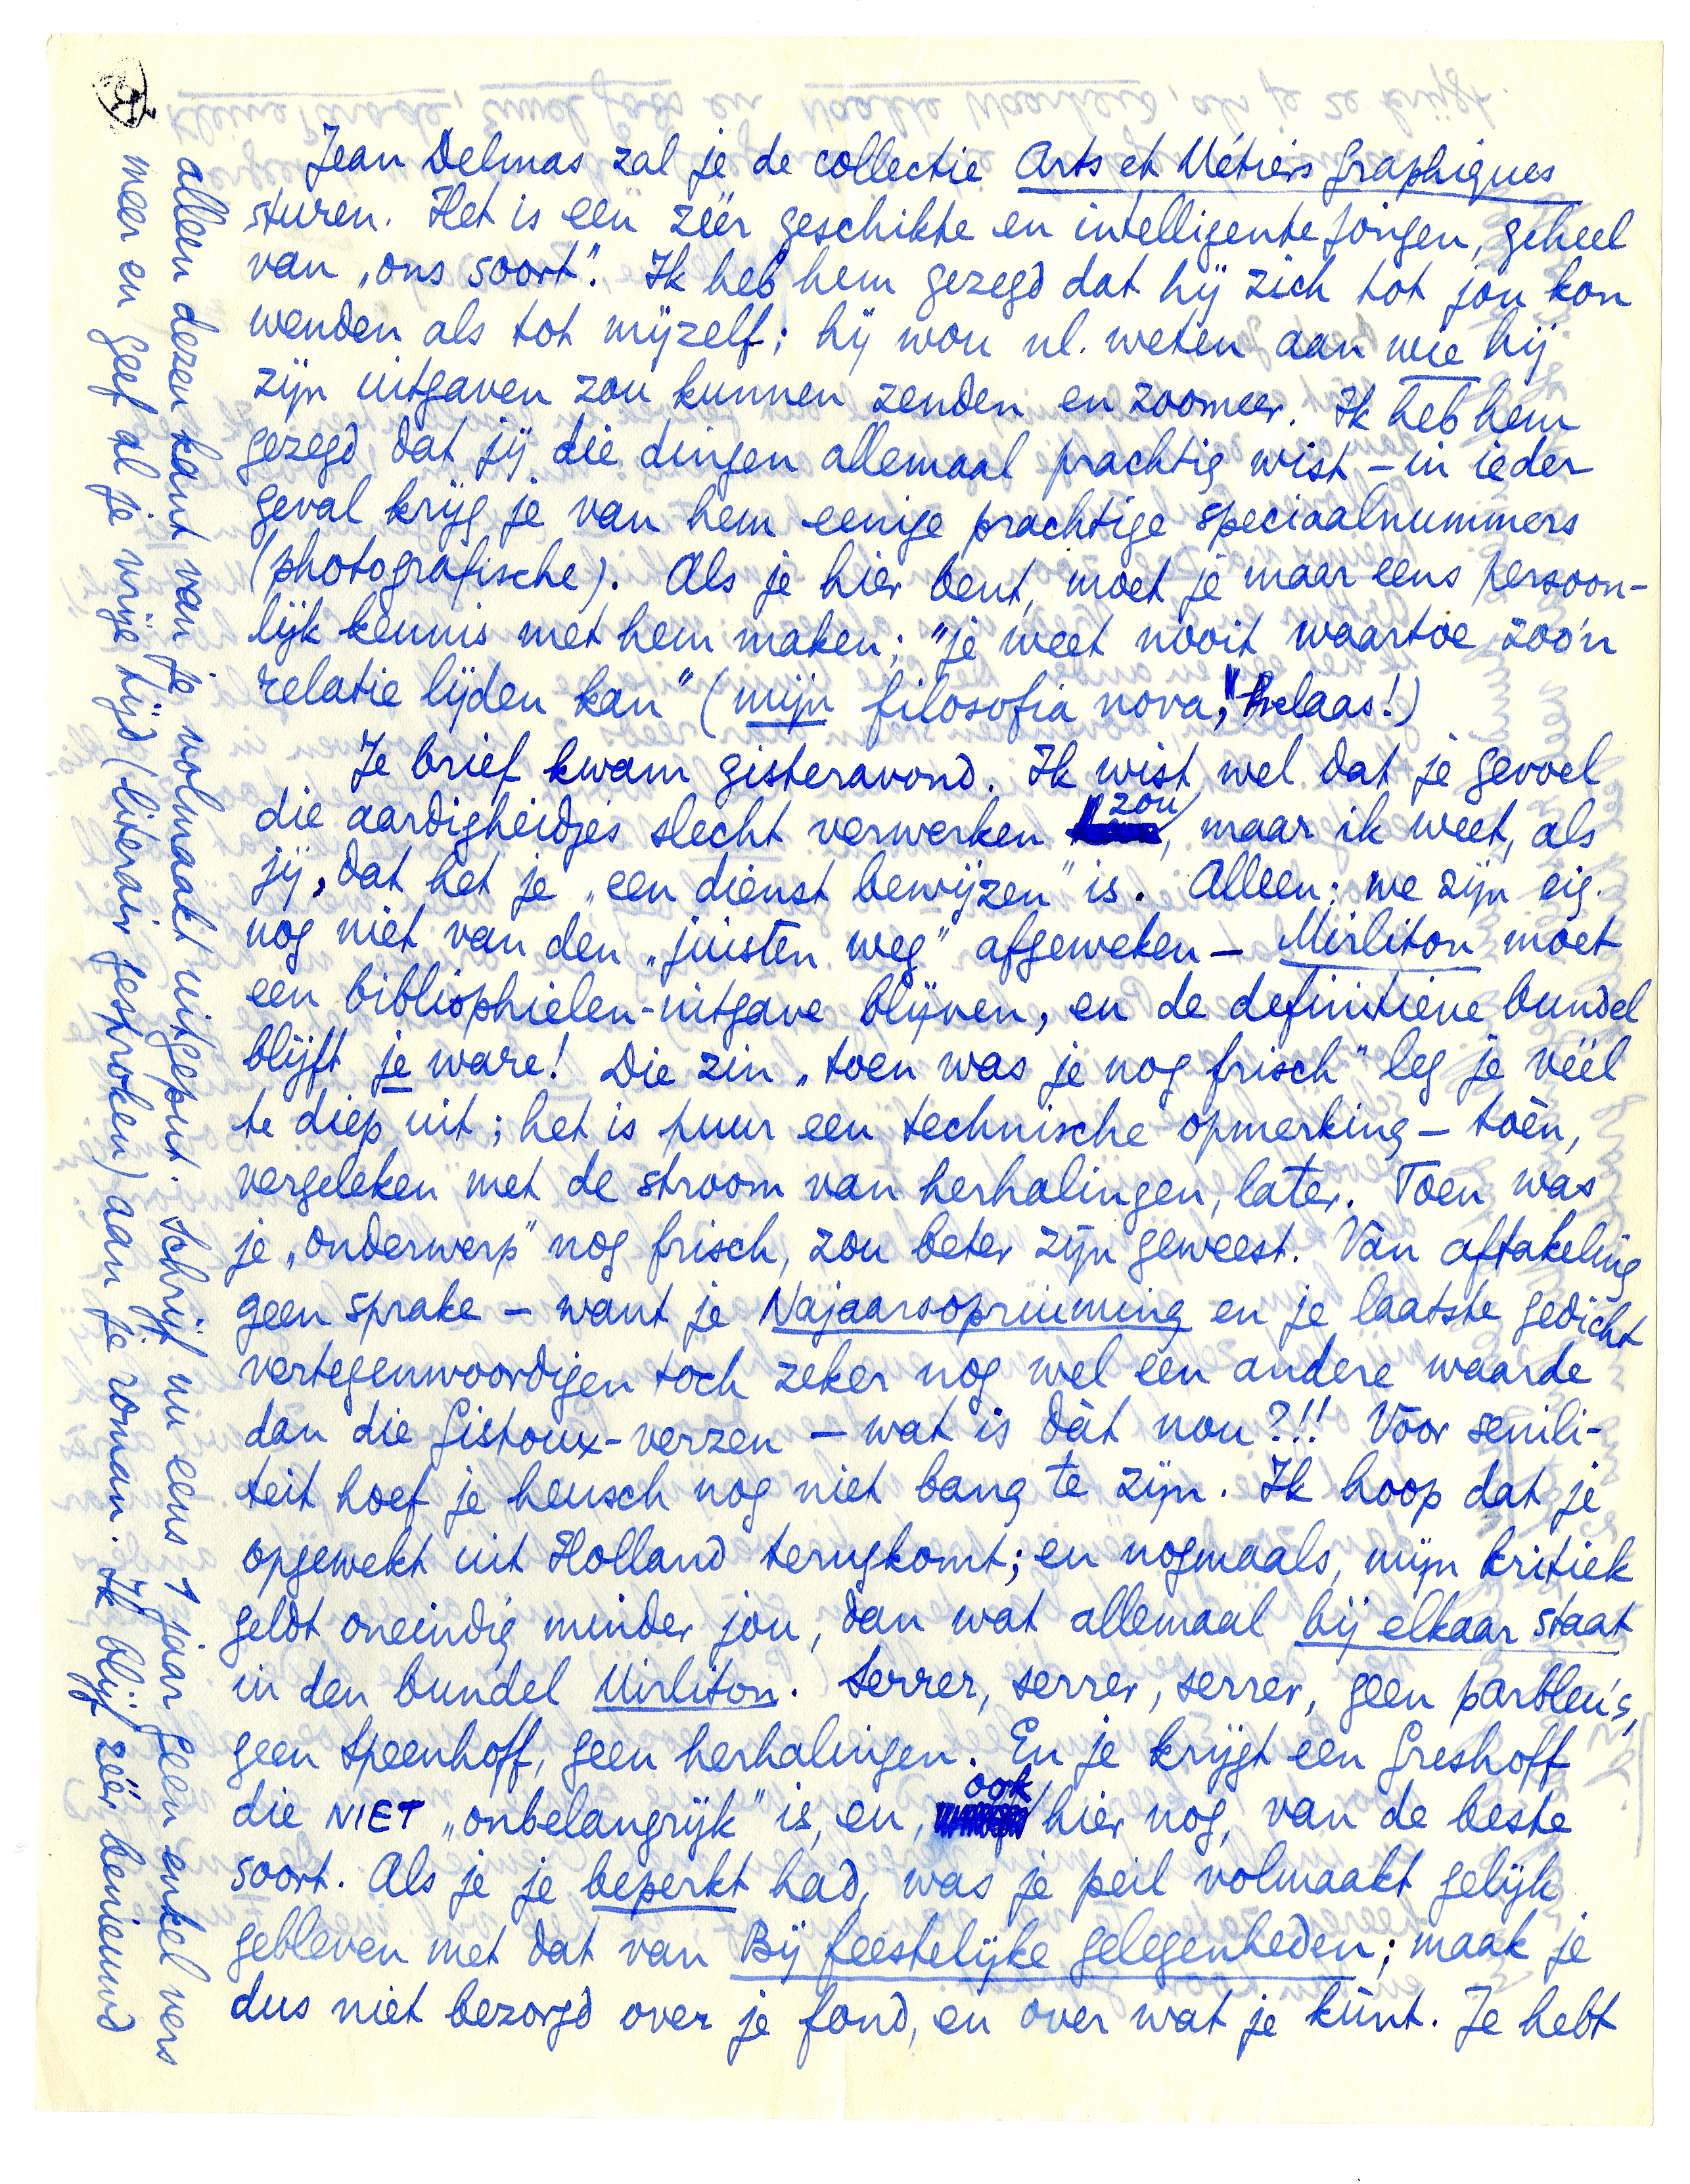 Jean Delmas zal je de collectie Arts et Métiers Graphiques
sturen. Het is een zéér geschikte en intelligente jongen, geheel
van „ons soort". Ik heb hem gezegd dat hij zich tot jou kon
wenden als tot mijzelf; hij wou nl. weten aan wie hij
zijn uitgaven zou kunnen zenden en zoomeer. Ik heb hem
gezegd, dat jij die dingen allemaal prachtig wist – in ieder
geval krijg je van hem eenige prachtige speciaalnummers
(photografische). Als je hier bent, moet je maar eens persoon-
lijk kennis met hem maken; "je weet nooit waartoe zoo'n
relatie lijden kan" (mijn filosofia nova," helaas!)
Je brief kwam gisteravond. Ik wist wel dat je gevoel
die aardigheidjes slecht verwerken zou, maar ik weet, als
jij, dat het je „een dienst bewijzen" is. Alleen: we zijn eig.
nog niet van den „juisten weg" afgeweken – Mirliton moet
een bibliophielen-uitgave blijven, en de definitieve bundel
blijft je ware! Die zin „toen was je nog frisch" leg je véél
te diep uit; het is puur een technische opmerking – toèn,
vergeleken met de stroom van herhalingen, later. Toen was
je „onderwerp" nog frisch, zou beter zijn geweest. Van aftakeling
geen sprake – want je Najaarsopruiming en je laatste gedicht
vertegenwoordigen toch zeker nog wel een andere waarde
dan die Gistoux-verzen – wat is dàt nou?!! Voor senili-
teit hoef je heusch nog niet bang te zijn. Ik hoop dat je
opgewekt uit Holland terugkomt; en nogmaals, mijn kritiek
geldt oneindig minder jou, dan wat allemaal bij elkaar staat
in den bundel Mirliton. Serrer, serrer, serrer, geen parbleu's,
geen Speenhoff, geen herhalingen. En je krijgt een Greshoff
die NIET „onbelangrijk" is, en, ook hier nog, van de beste
soort. Als je je beperkt had, was je peil volmaakt gelijk
gebleven met dat van Bij feestelijke gelegenheden; maak je
dus niet bezorgd over je fond, en over wat je kùnt. Je hebt
alleen dezen kant van je volmaakt uitgeput. Schrijf nu eens 1 jaar geen enkel vers
meer en geef al je vrije tijd (literair gesproken) aan je roman. Ik blijf zéér benieuwd